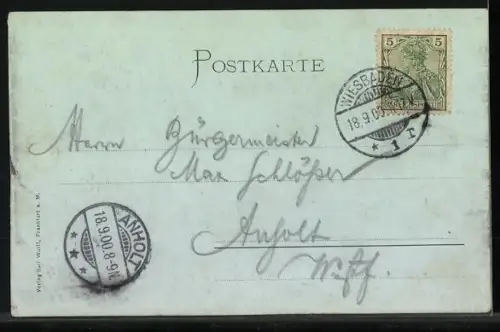 POSTKARTE
5 5
WIESBADEN
18.9.00
* 1 r
Herrn Bürgermeister
Max Schlößer
Anholt
Westf.
ANHOLT
18.9.00.8-9N.
* * *
Verlag Ralf Wolff, Frankfurt a. M.